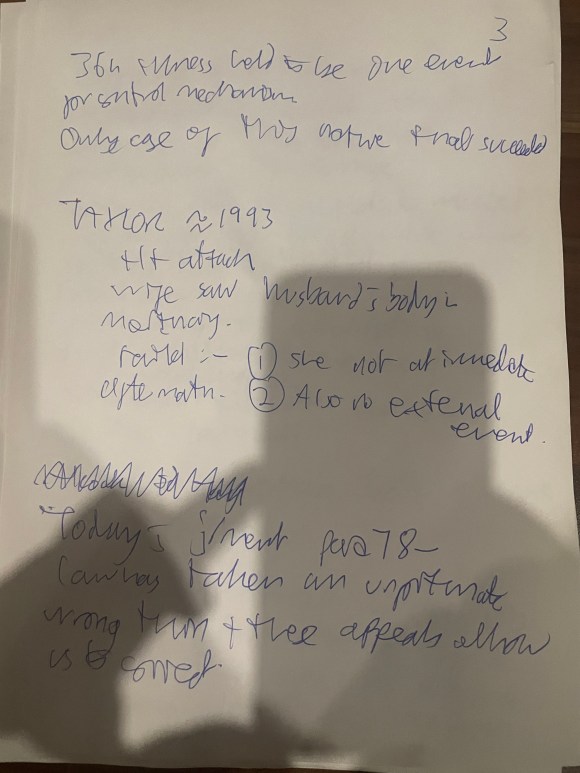 3
36h illness held to be one event
for control mechanism
Only case of this nature that succeeded
TAYLOR ≈ 1993
Ht attack
wife saw husband's body in
mortuary.
Failed :- ① she not at immediate
aftermath. ② Also no external
event.
Today's j/ment para 78 -
Law has taken an unfortunate
wrong turn + these appeals allow
us to correct.